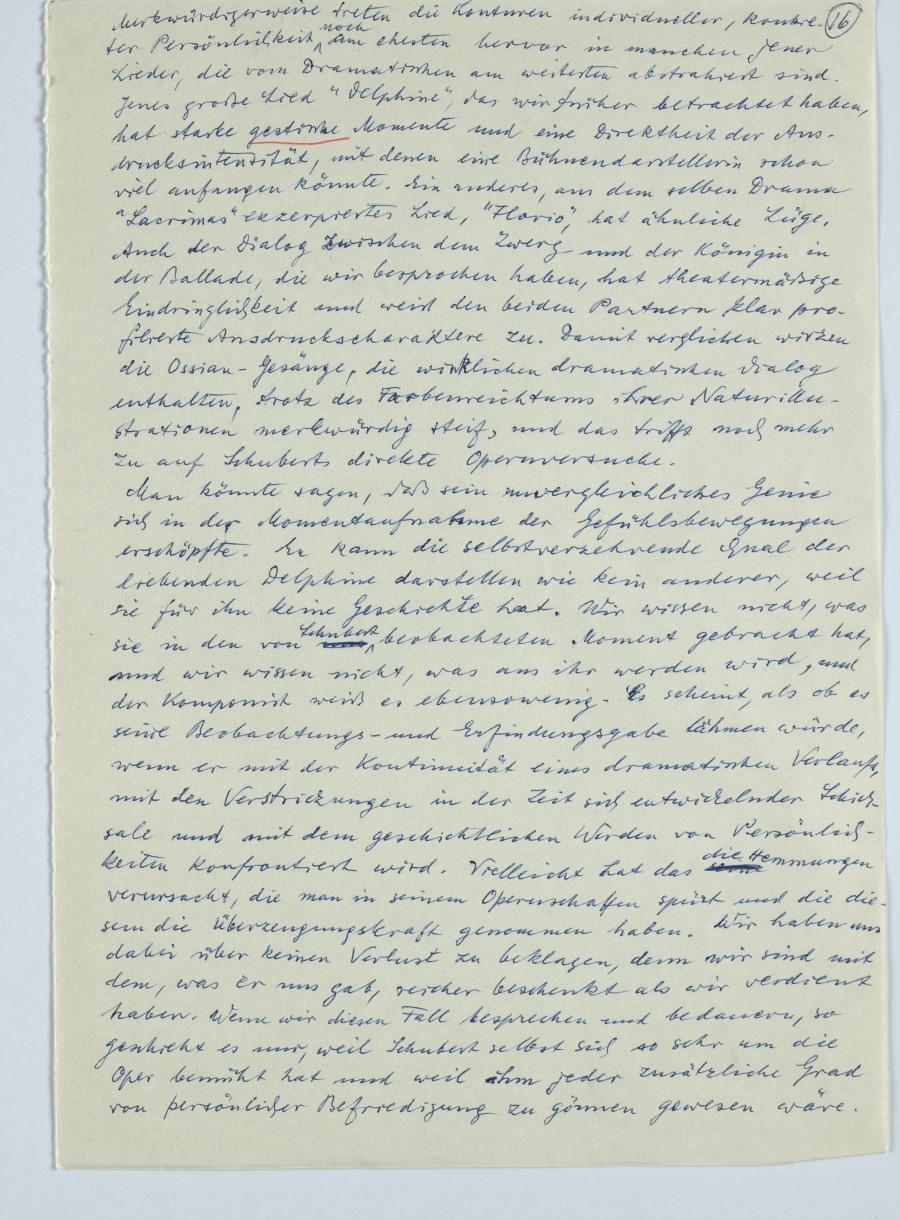 Merkwürdigerweise treten die Konturen individueller, konkre- 16
ter Persönlichkeit noch am ehesten hervor in manchen jener
Lieder, die vom Dramatischen am weitesten abstrahiert sind.
Jenes große Lied "Delphine", das wir früher betrachtet haben,
hat starke gestische Momente und eine Direktheit der Aus-
drucksintensität, mit denen eine Bühnendarstellerin schon
viel anfangen könnte. Ein anderes, aus dem selben Drama
"Lacrimas" exzerpiertes Lied, "Florio", hat ähnliche Züge.
Auch der Dialog zwischen dem Zwerg und der Königin in
der Ballade, die wir besprochen haben, hat theatermäßige
Eindringlichkeit und weist den beiden Partnern klar pro-
filierte Ausdruckscharaktere zu. Damit verglichen wirken
die Ossian-Gesänge, die wirklichen dramatischen Dialog
enthalten, trotz des Farbenreichtums ihrer Naturillu-
strationen merkwürdig steif, und das trifft noch mehr
zu auf Schuberts direkte Opernversuche.
Man könnte sagen, daß sein unvergleichliches Genie
sich in der Momentaufnahme der Gefühlsbewegungen
erschöpfte. Er kann die selbstverzehrende Qual der
liebenden Delphine darstellen wie kein anderer, weil
sie für ihn keine Geschichte hat. Wir wissen nicht, was
sie in den von Schubert beobachteten Moment gebracht hat,
und wir wissen nicht, was aus ihr werden wird, und
der Komponist weiß es ebensowenig. Es scheint, als ob es
seine Beobachtungs- und Erfindungsgabe lähmen würde,
wenn er mit der Kontinuität eines dramatischen Verlaufs,
mit den Verstrickungen in der Zeit sich entwickelnder Schick-
sale und mit dem geschichtlichen Werden von Persönlich-
keiten konfrontiert wird. Vielleicht hat das die Hemmungen
verursacht, die man in seinem Opernschaffen spürt und die die-
sem die Überzeugungskraft genommen haben. Wir haben uns
dabei über keinen Verlust zu beklagen, denn wir sind mit
dem, was er uns gab, reicher beschenkt als wir verdient
haben. Wenn wir diesen Fall besprechen und bedauern, so
geschieht es nur, weil Schubert selbst sich so sehr um die
Oper bemüht hat und weil ihm jeder zusätzliche Grad
von persönlicher Befriedigung zu gönnen gewesen wäre.